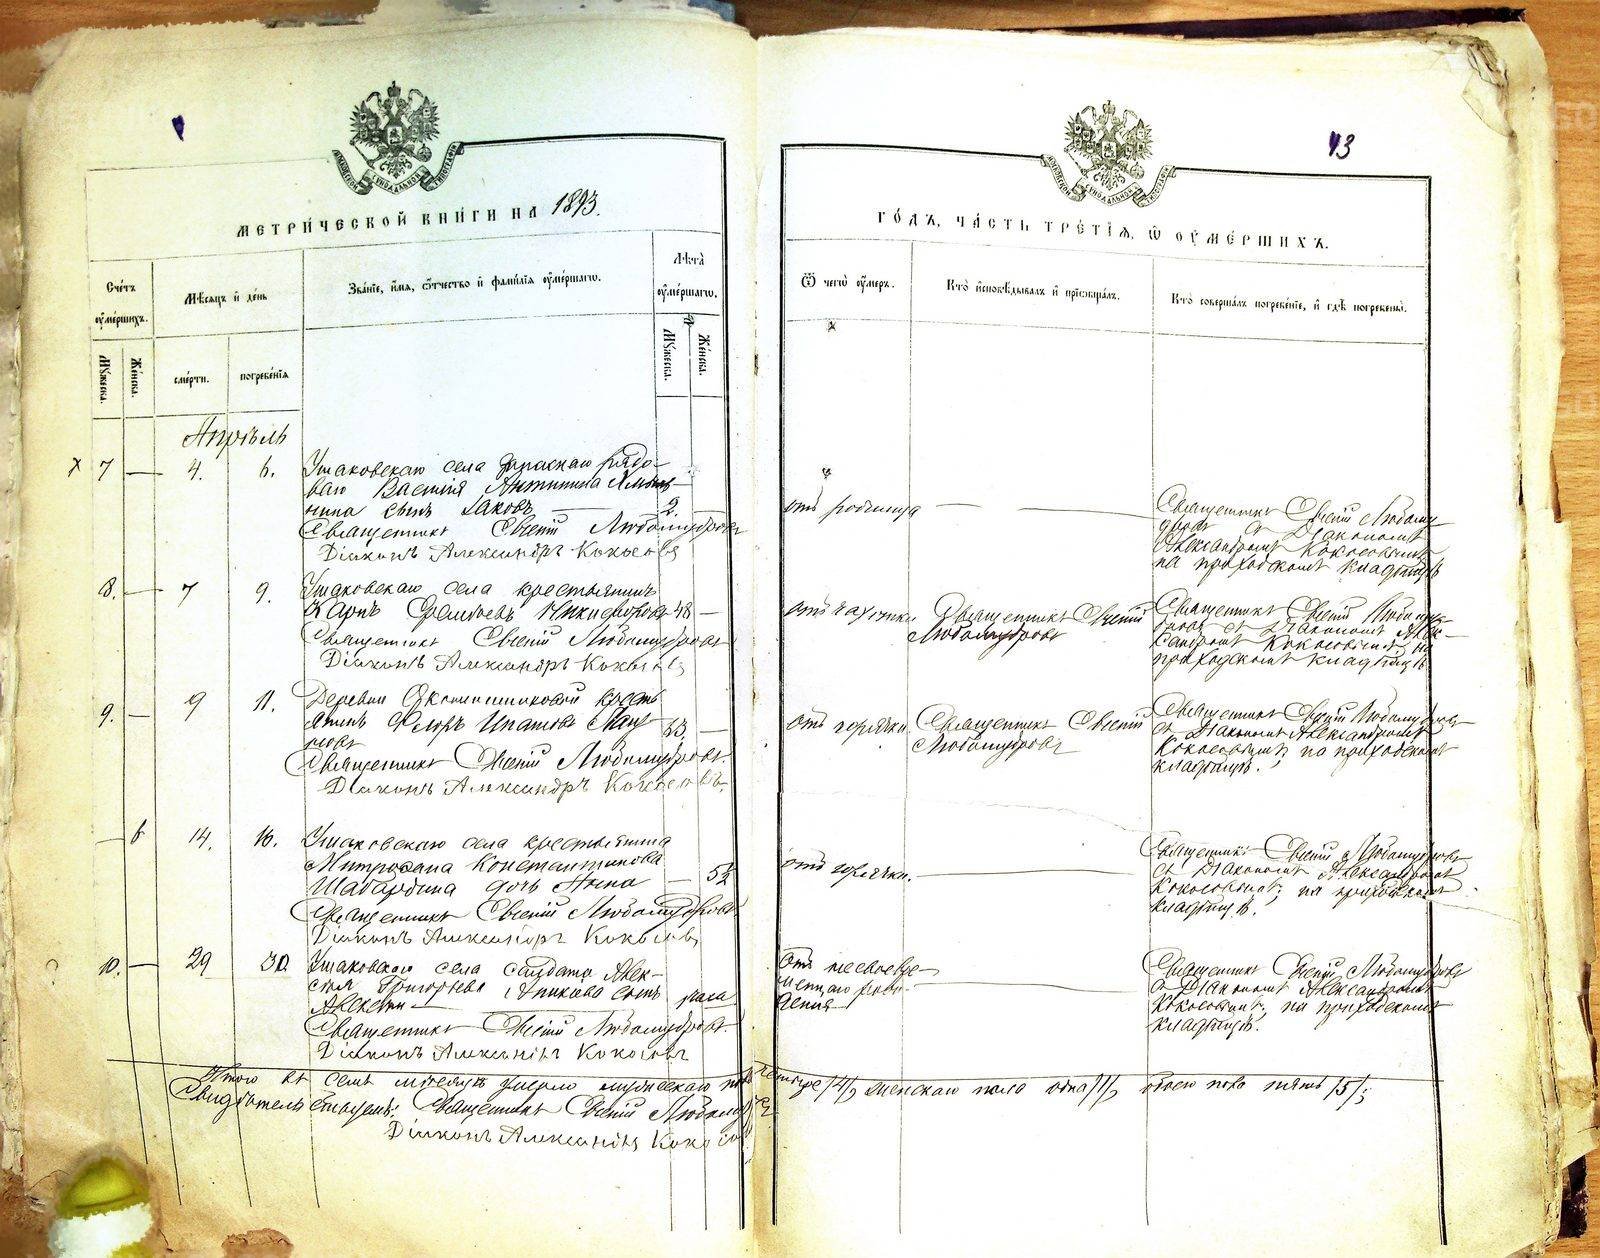 13
МОСКОВСКОЙ СУНОДАЛЬНОЙ ТИПОГРАФІИ
МОСКОВСКОЙ СУНОДАЛЬНОЙ ТИПОГРАФІИ
МЕТРИ́ЧЕСКОЙ КНИ́ГИ НА 1893.
ГО́ДЪ, ЧА́СТЬ ТРЕ́ТІѦ, Ѡ ОУМЕ́РШИХЪ.
Сче́тъ оуме́ршихъ.
Мѣсѧцъ и де́нь
Зва́нїе, и́мѧ, о́тчество и фами́лїѧ оуме́ршагѡ.
Лѣта̀ оуме́ршагѡ.
Ѿ чегѡ̀ оу́меръ.
Кто̀ и́сповѣдывалъ и прїѡбща́лъ.
Кто̀ соверша́лъ погребе́нїе, и гдѣ погребены̀.
Мꙋжеска.
Же́нска.
сме́рти.
погребе́нїѧ
Мꙋжеска.
Же́нска.
Апрѣль
7 — 4. 6. Ушаковскаго села рядо-
ваго Василія Антипина
сынъ Іаковъ — 2.
Священникъ Евгеній Любомудровъ
Діаконъ Александръ Кокосовъ
отъ родимца — —
Священникъ Евгеній Любому-
дровъ съ Діакономъ
Александромъ Кокосовымъ
на приходскомъ кладбищѣ
8. — 7 9. Ушаковскаго села крестьянинъ
Карпъ Никифоровъ 48 —
Священникъ Евгеній Любомудровъ
Діаконъ Александръ Кокосовъ
отъ чахотки
Священникъ Евгеній
Любомудровъ
Священникъ Евгеній Любому-
дровъ съ Діакономъ Алек-
сандромъ Кокосовымъ на
приходскомъ кладбищѣ
9. — 9 11. Деревни крестья-
янинъ Флоръ Ипатовъ
Священникъ Евгеній Любомудровъ.
Діаконъ Александръ Кокосовъ.
отъ горячки
Священникъ Евгеній
Любомудровъ
Священникъ Евгеній Любомудровъ
съ Діакономъ Александромъ
Кокосовымъ; на приходскомъ
кладбищѣ.
— 6 14. 16. Ушаковскаго села крестьянина
Митрофана Константинова
Шабардина дочь Анна — 5½
Священникъ Евгеній Любомудровъ
Діаконъ Александръ Кокосовъ
отъ горячки. —
Священникъ Евгеній Любомудровъ
съ Діакономъ Александромъ
Кокосовымъ; на приходскомъ
кладбищѣ.
10. — 29 30. Ушаковскаго села солдата Алек-
сѣя Григорьева Аникіева сынъ
Алексѣй — часа
Священникъ Евгеній Любомудровъ
Діаконъ Александръ Кокосовъ
Отъ несвоевре-
меннаго рож-
денія —
Священникъ Евгеній Любомудровъ
съ Діакономъ Александромъ
Кокосовымъ; на приходскомъ
кладбищѣ.
Итого въ семъ мѣсяцѣ умерло мужескаго пола четыре /4/, женскаго пола одна /1/, обоего пола пять /5/;
Священникъ Евгеній Любомудровъ
Діаконъ Александръ Кокосовъ